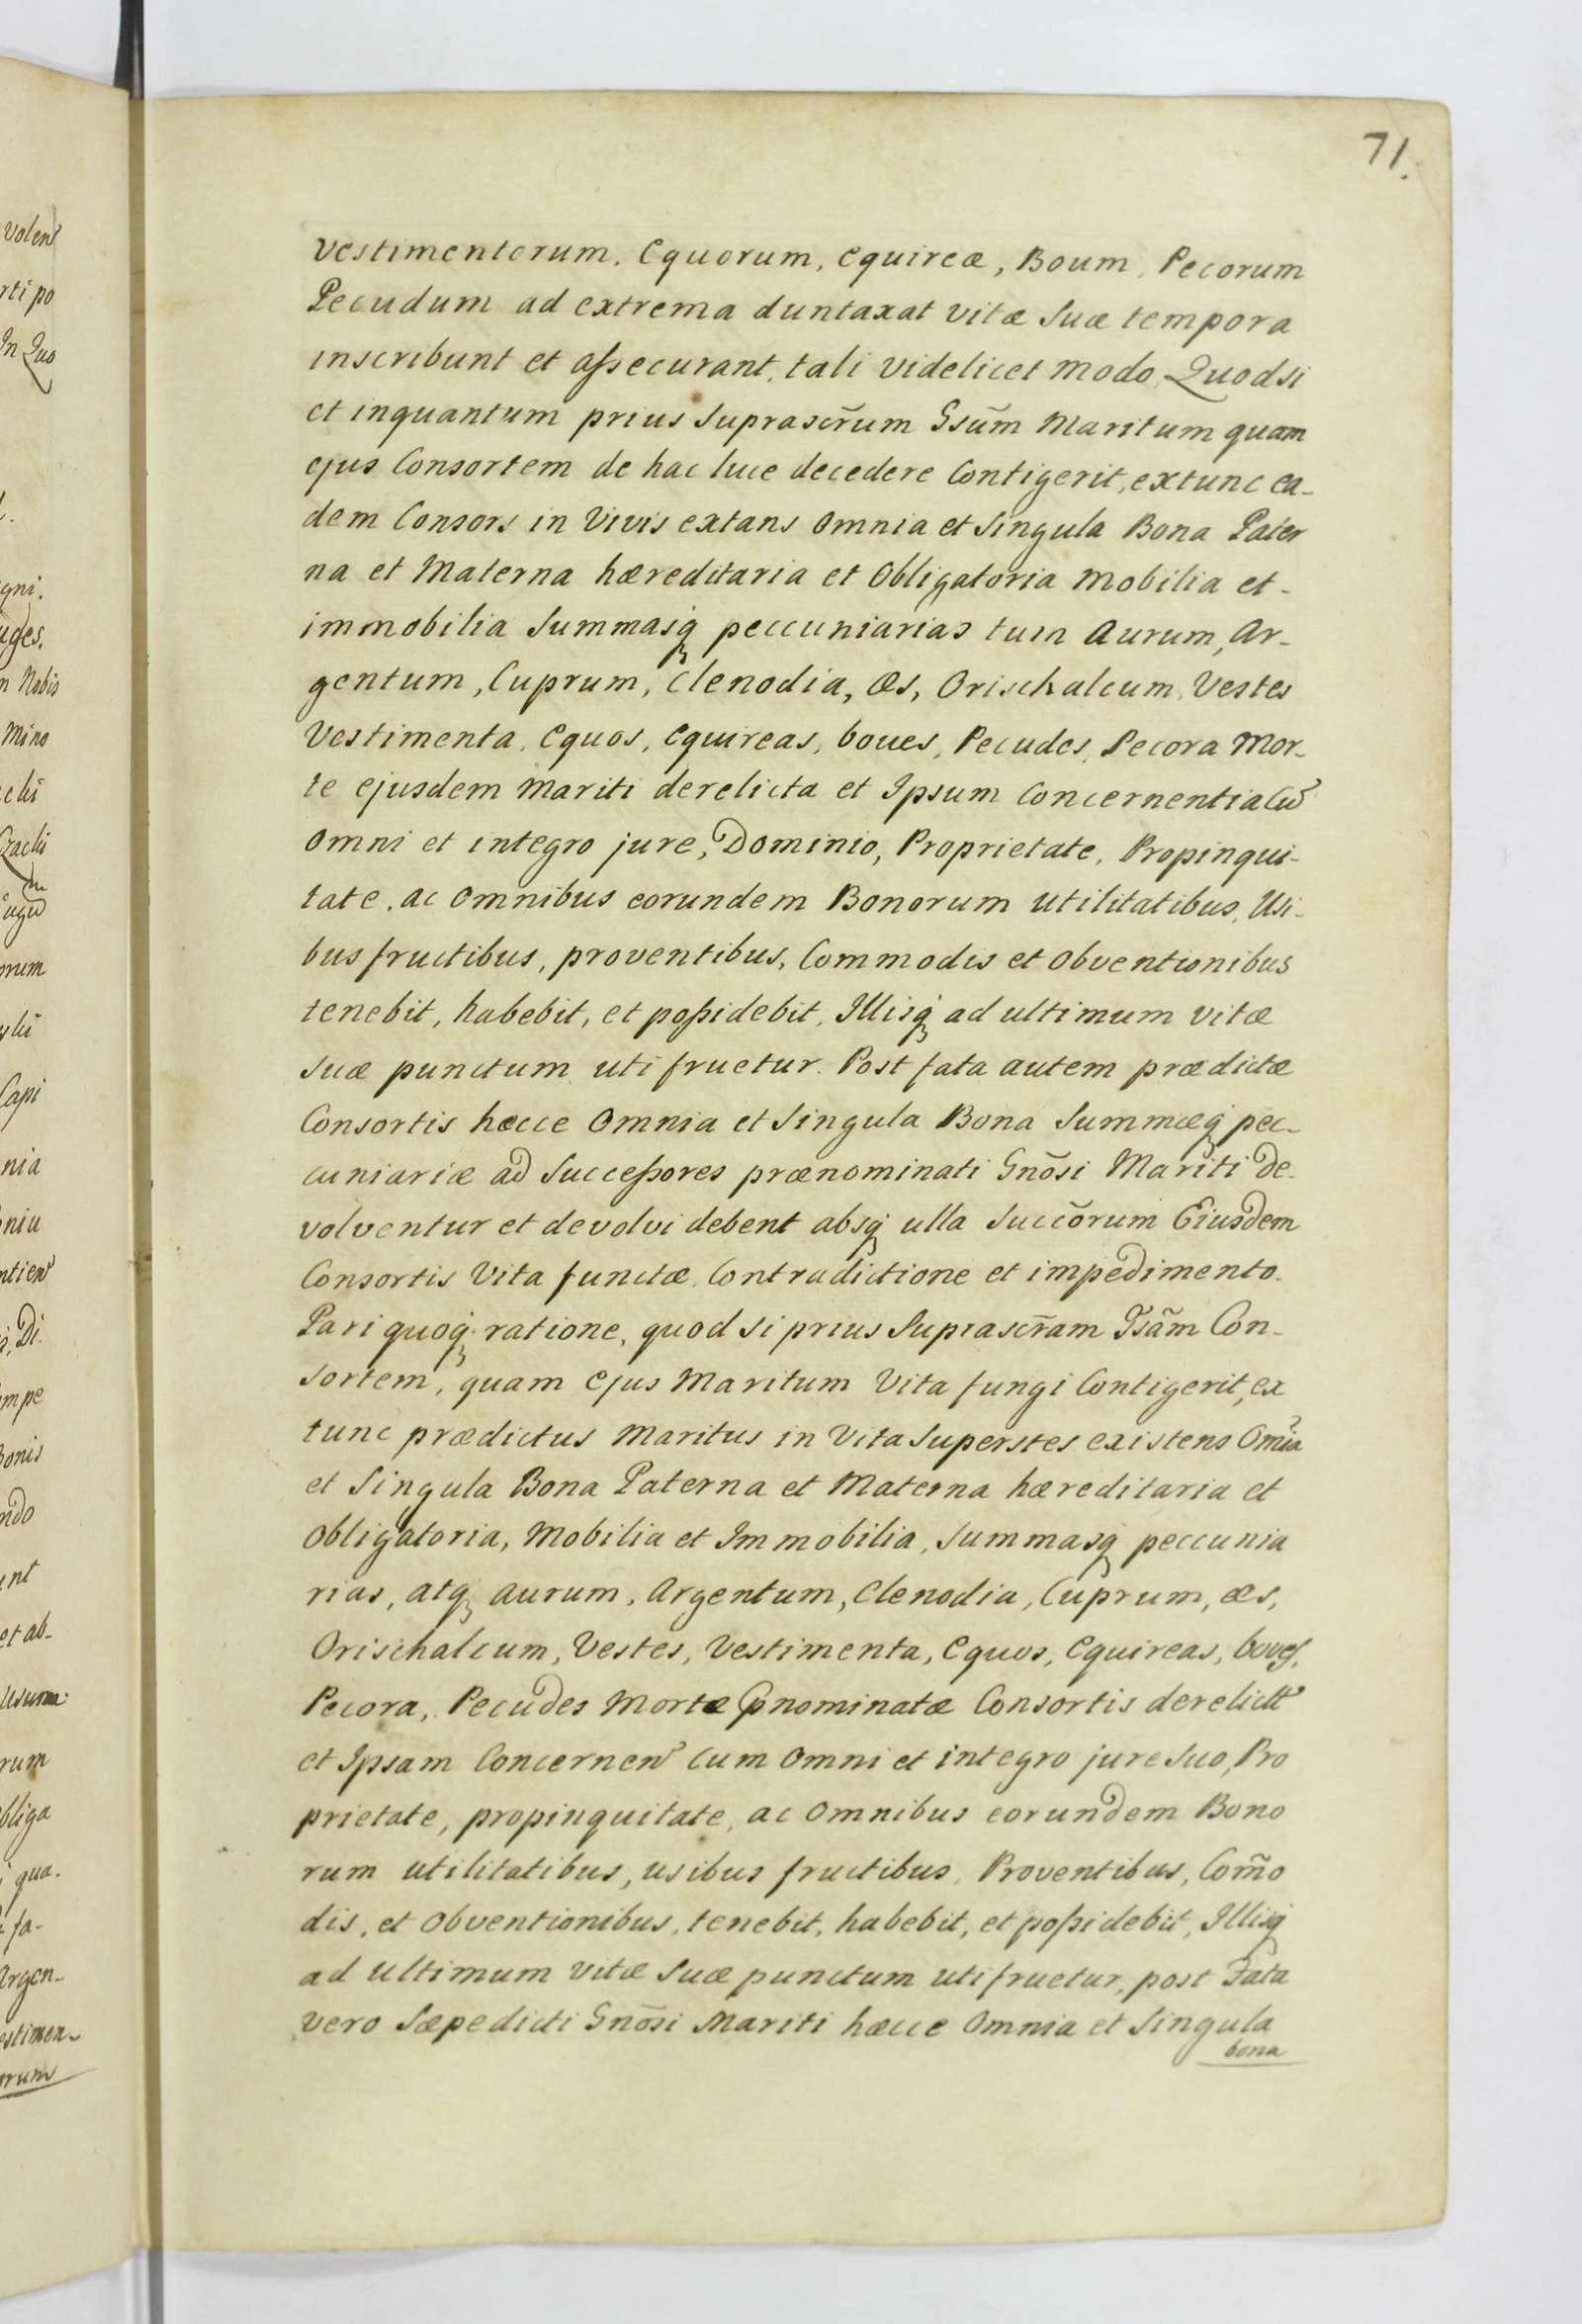 71.
Vestimentorum, Equorum, equireæ, Boum, Pecorum
Pecudum ad extrema duntaxat vitæ suæ tempora
inscribunt et assecurant, tali videlicet modo Quodsi
et inquantum prius suprascr̃um Gsũm Maritum quam
ejus Consortem de hac luce decedere Contigerit, extunc ea-
dem Consors in Vivis extans omnia et singula Bona Pater
na et Materna hæreditaria et Obligatoria mobilia et-
immobilia summasq; peccuniarias tum Aurum, Ar-
gentum, Cuprum, Clenodia, æs, Orischalcum, Vestes
Vestimenta, Equos, equireas, boves, Pecudes, Pecora Mor-
te ejusdem Mariti derelicta et Ipsum Concernentia Cu͂
omni et integro jure, Dominio, Proprietate, Propinqui-
tate, ac omnibus eorundem Bonorum utilitatibus, Usi-
bus fructibus, proventibus, Commodis et obventionibus
tenebit, habebit, et possidebit, Illisq; ad ultimum vitæ
suæ punctum uti fruetur. Post fata autem prædictæ
Consortis hæcce Omnia et singula Bona summæq; pec-
cuniariæ ad Successores prænominati Gnõsi Mariti de-
volventur et devolvi debent absq; ulla succõrum Eiusdem
Consortis Vita functæ, Contradictione et impedimento.
Pari quoq; ratione, quod si prius Suprascr̃am Gsãm Con-
sortem, quam ejus Maritum Vita fungi Contigerit, ex
tunc prædictus Maritus in Vita Superstes existens Om̃ia
et singula Bona Paterna et Materna hæreditaria et
Obligatoria, Mobilia et Immobilia, summasq; peccunia
rias, atq; aurum, Argentum, Clenodia, Cuprum, æs,
Orischalcum, Vestes, Vestimenta, Equos, Equireas, boves,
Pecora, Pecudes Mortæ p̃nominatæ Consortis derelict͂
et Ipsam Concernen͂ Cum Omni et integro jure suo, Pro
prietate, propinquitate, ac omnibus eorundem Bono
rum utilitatibus, usibus fructibus, Proventibus, Com̃o
dis, et Obventionibus, tenebit, habebit, et possidebit, Illisq;
ad ultimum vitæ suæ punctum uti fruetur, post Fata
vero Sæpedicti Gnõsi Mariti hæcce Omnia et singula
bona